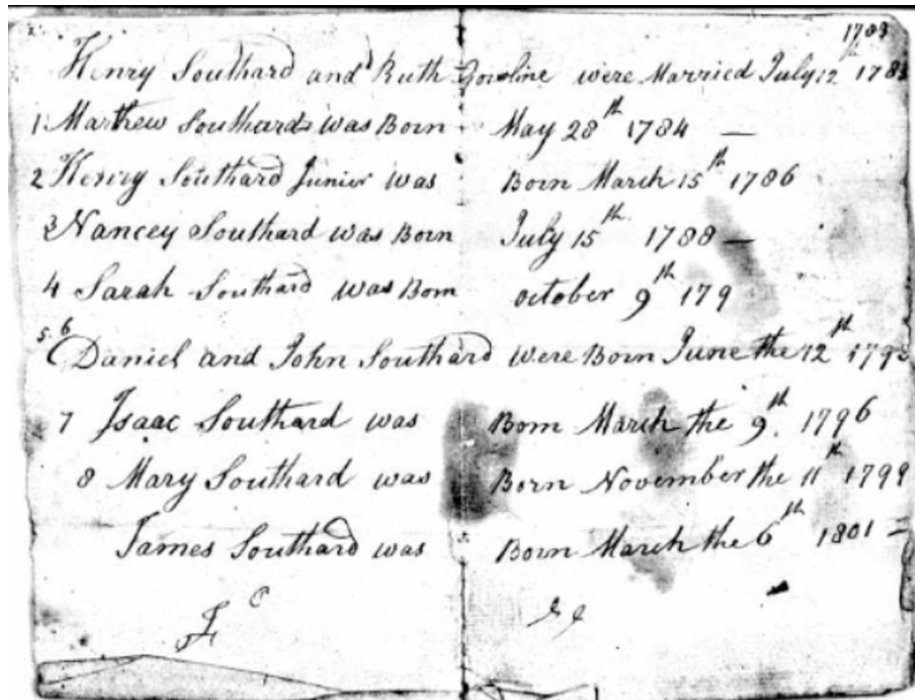 1783
Henry Southard and Ruth Goveline were Married July 12th 1783
1 Mathew Southard was Born May 28th 1784 —
2 Henry Southard Junier was Born March 15th 1786
3 Nancey Southard was Born July 15th 1788 —
4 Sarah Southard was Born october 9th 179
5.6 Daniel and John Southard were Born June the 12th 179
7 Isaac Southard was Born March the 9th 1796
8 Mary Southard was Born November the 11th 1799
James Southard was Born March the 6th 1801 —